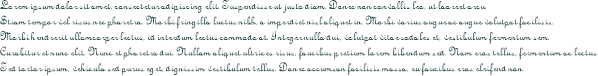 Lorem ipsum dolor sit amet, consectetur adipiscing elit. Suspendisse ut justo diam. Donec non convallis leo, ut laoreet arcu.
Etiam semper vel risus nec pharetra. Morbi fringilla luctus nibh, a imperdiet nisl aliquet in. Morbi varius augue ac augue volutpat facilisis.
Morbi hendrerit ullamcorper lectus, id interdum lectus commodo at. Integer nulla dui, volutpat vitae sodales et, vestibulum fermentum sem.
Curabitur et nunc elit. Nunc et pharetra dui. Nullam aliquet ultrices risus, faucibus pretium lorem bibendum sed. Nam eros tellus, fermentum ac lectus
Sed tortor ipsum, vehicula sed purus eget, dignissim vestibulum tellus. Donec accumsan facilisis massa, eu faucibus eros eleifend non.